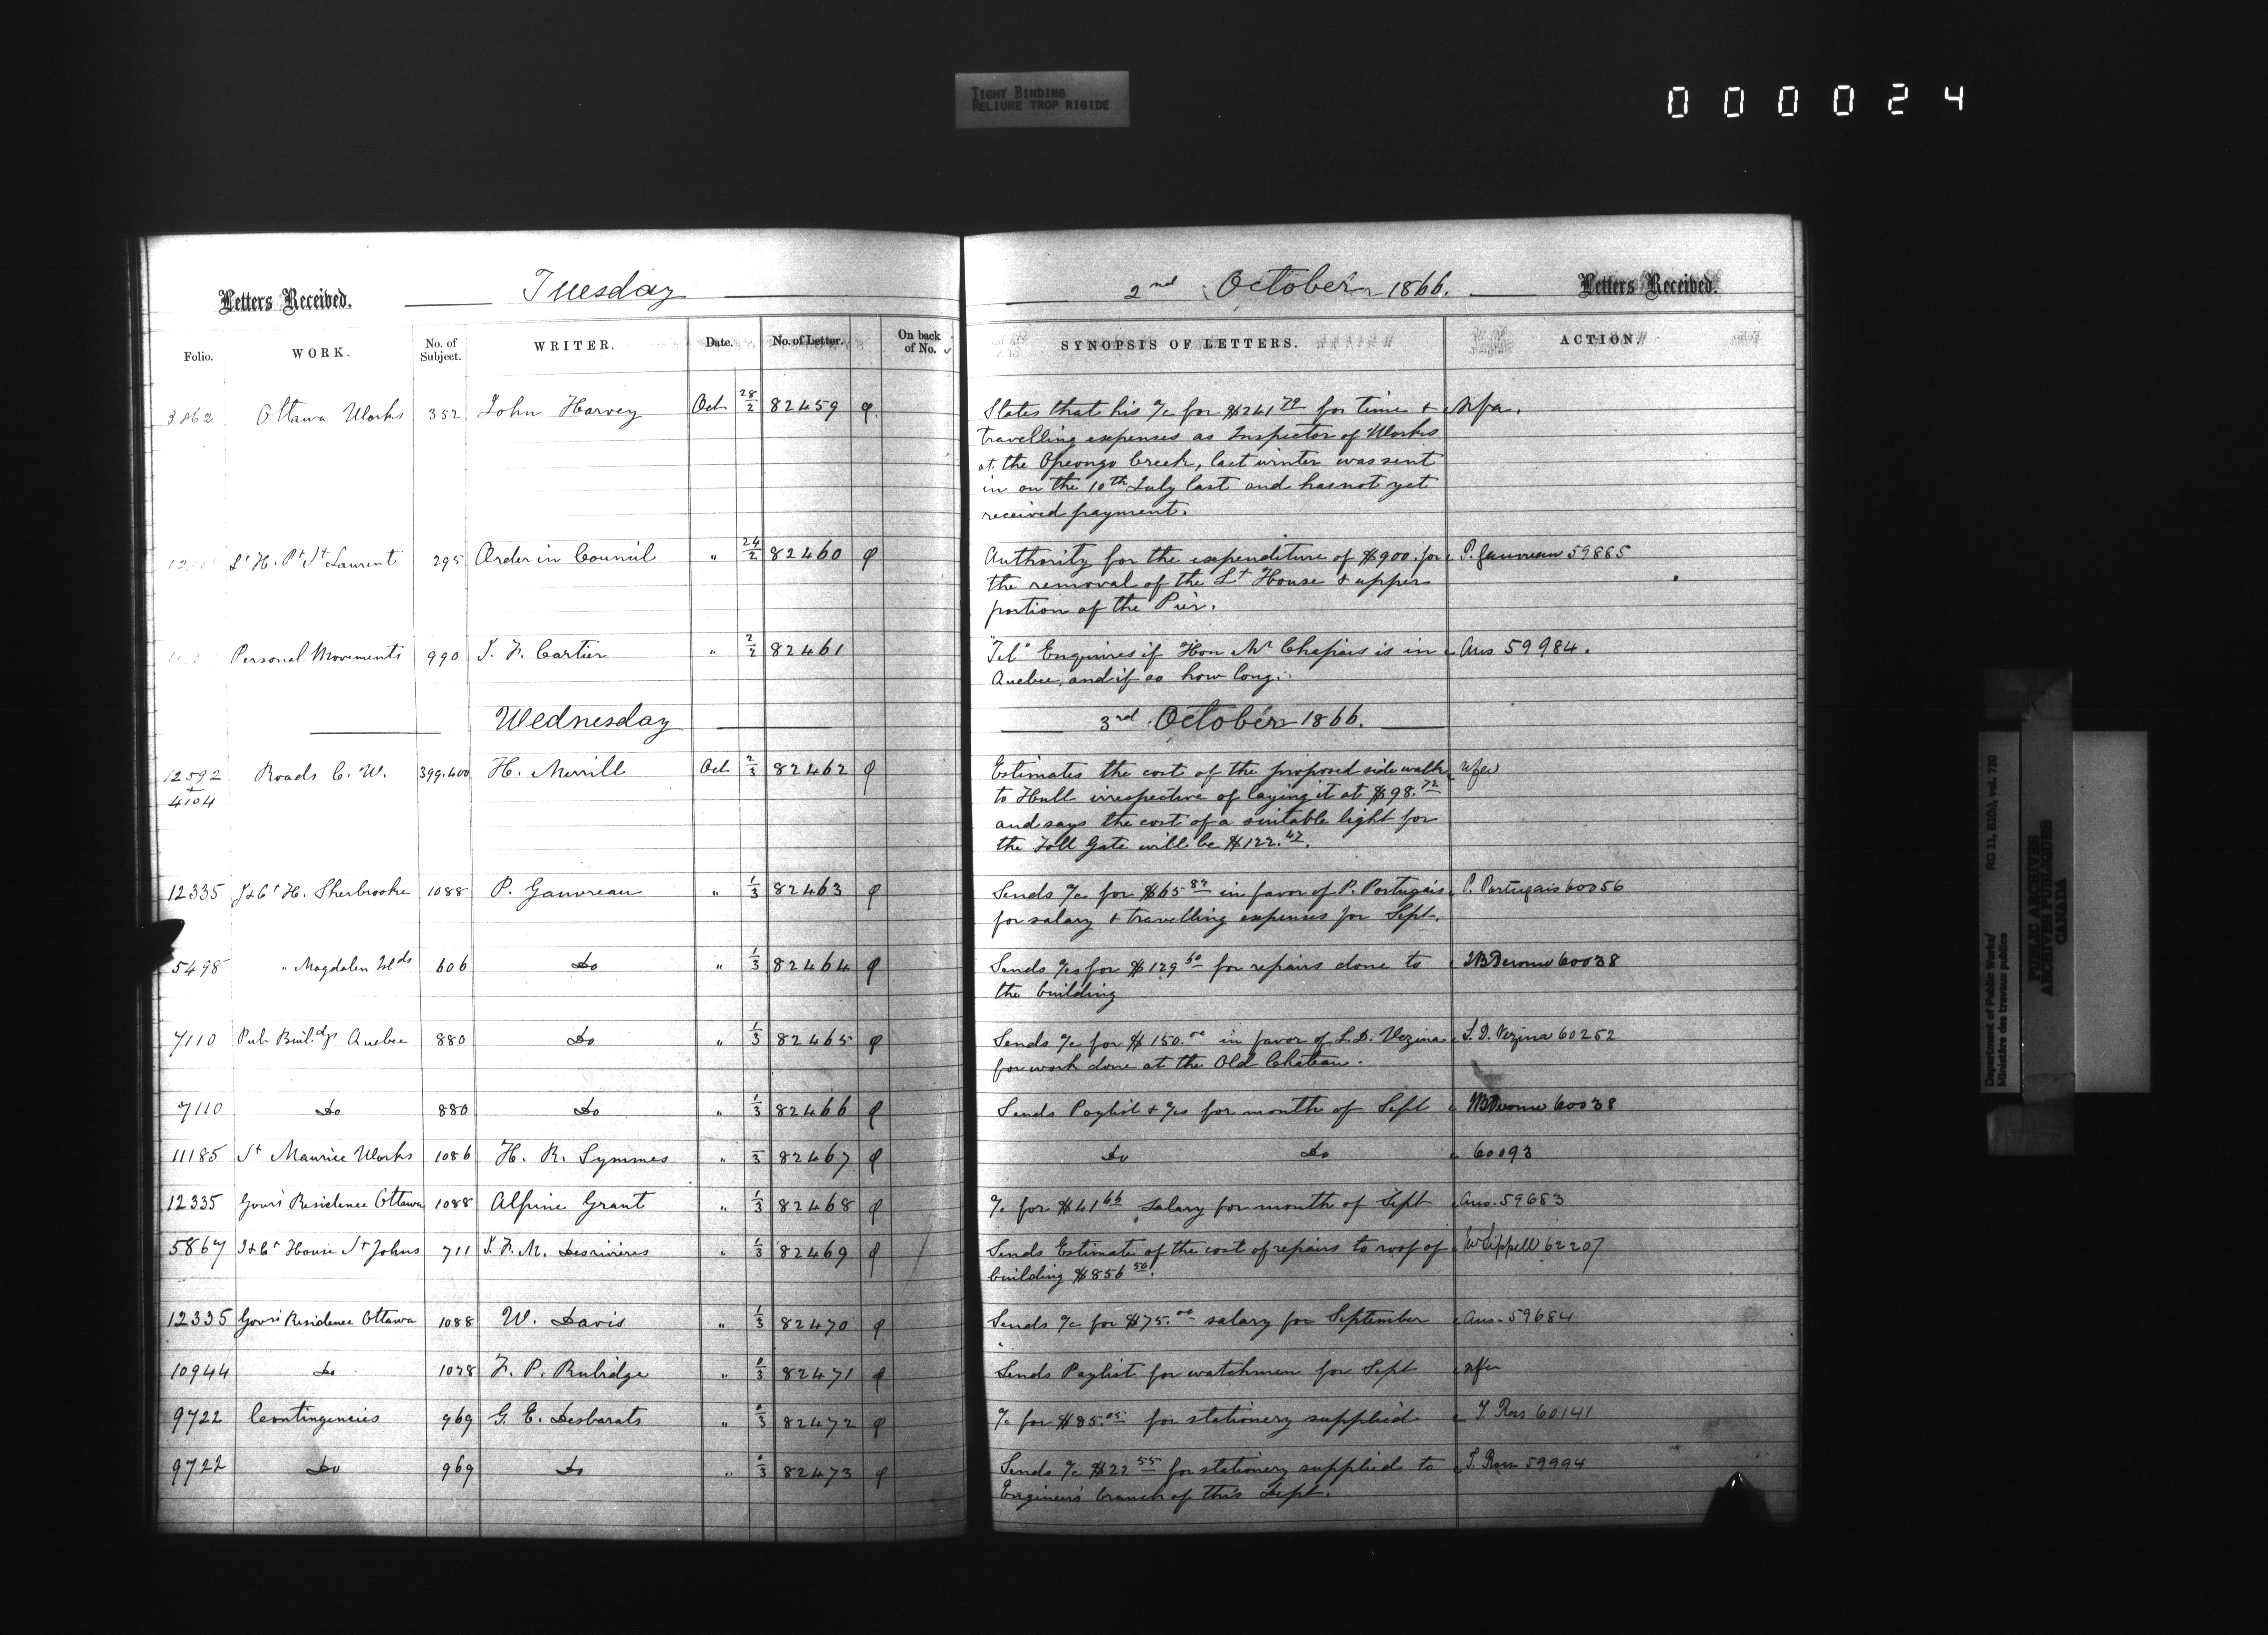 TIGHT BINDING
RELIURE TROP RIGIDE
000024
Letters Received. Tuesday 2nd October 1866. Letters Received.
Folio. WORK. No. of Subject. WRITER. Date. No. of Letter. On back of No. SYNOPSIS OF LETTERS. ACTION.
3862 Ottawa Works 352 John Harvey Oct 28/2 82459 States that his a/c for $241 79 for time & Nfa.
travelling expenses as Inspector of Works
at the Opeongo Creek, last winter was sent
in on the 10th July last and has not yet
received payment.
Lt H. Pt St Laurent 295 Order in Council " 24/2 82460 Authority for the expenditure of $900. for P. Gauvreau 59885
the removal of the Lt House & upper
portion of the Pier.
Personal Movements 990 J. F. Cartier " 2/2 82461 "Tel" Enquires if Hon Mr Chapais is in Ans 59984.
Quebec, and if so how long.
Wednesday 3rd October 1866.
12592 Roads C. W. 399.400 H. Merrill Oct 2/3 82462 Estimates the cost of the proposed side walk Nfa
+
4104 to Hull irrespective of laying it at $98.72
and says the cost of a suitable light for
the Toll Gate will be $122.47.
12335 J & Ct H. Sherbrooke 1088 P. Gauvreau " 1/3 82463 Sends a/c for $65 87 in favor of P. Portugais P. Portugais 60056
for salary & travelling expenses for Sept.
5498 " Magdalen Islds 606 Do " 1/3 82464 Sends a/cs for $129 60 for repairs done to 60038
the building
7110 Pub Buildgs Quebec 880 Do " 1/3 82465 Sends a/c for $150.00 in favor of L. D. Vezina L. D. Vezina 60252
for work done at the Old Chateau.
7110 Do 880 Do " 1/3 82466 Sends Paylist & a/cs for month of Sept 60038
11185 St Maurice Works 1086 H. R. Symmes " /3 82467 Do Do 60093
12335 Govr's Residence Ottawa 1088 Alpine Grant " 1/3 82468 a/c for $41 66 salary for month of Sept Ans. 59683
5867 J & Ct House St Johns 711 J. F. M. Desrivieres " 1/3 82469 Sends Estimate of the cost of repairs to roof of W Sippell 62207
building $856 50.
12335 Govr's Residence Ottawa 1088 W. Davis " 1/3 82470 Sends a/c for $75.00 salary for September Ans. 59684
10944 Do 1028 F. P. Rubidge " /3 82471 Sends Paylist for watchmen for Sept Nfa
9722 Contingencies 969 G. E. Desbarats " /3 82472 a/c for $85.05 for stationery supplied T. Ross 60141
9722 Do 969 Do " /3 82473 Sends a/c $22 55 for stationery supplied to T. Ross 59994
Engineers branch of this Dept.
Department of Public Works/
Ministère des travaux publics
RG 11, B1(b), vol. 728
PUBLIC ARCHIVES
ARCHIVES PUBLIQUES
CANADA